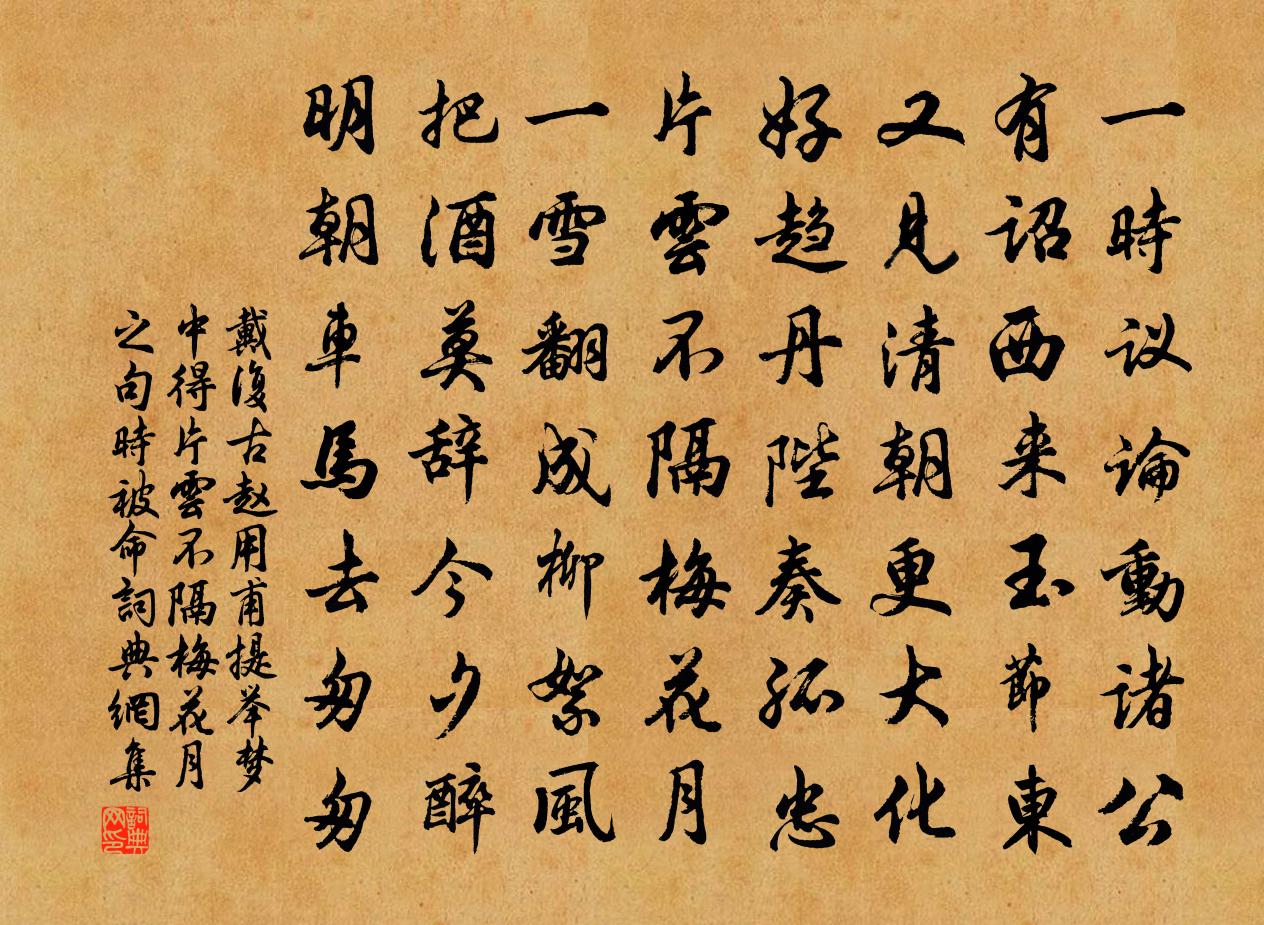 一時议論動諸公
有诏西来玉節東
又見清朝更大化
好趋丹陛奏孤忠
片雲不隔梅花月
一雪翻成柳絮風
把酒莫辞今夕醉
明朝車馬去匆匆
戴復古赵用甫提举梦
中得片雲不隔梅花月
之句時被命詞典網集
詞典
网印